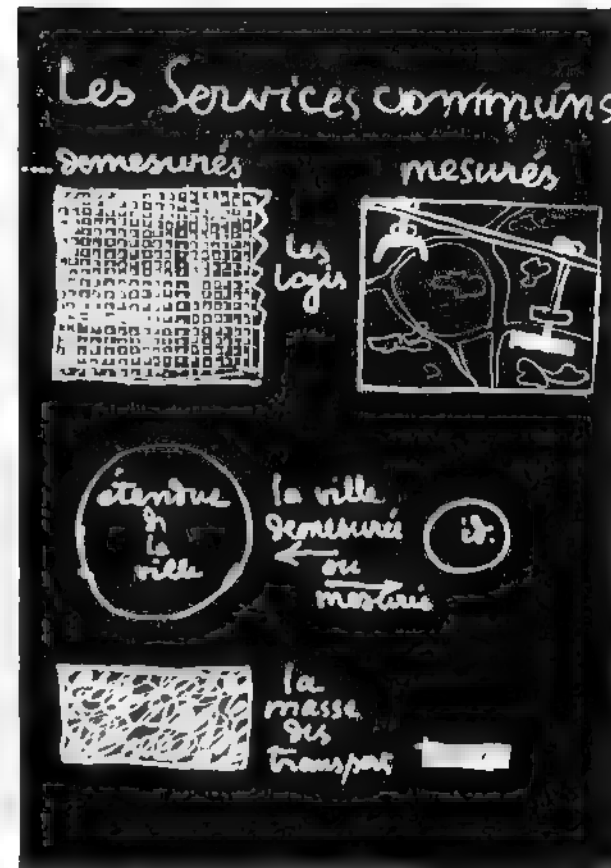 Les Services communs
... demesurés
mesurés
les
logis
étendue
de
la
ville
la ville
demesurée
ou
mesurée
id.
la
masse
des
transport